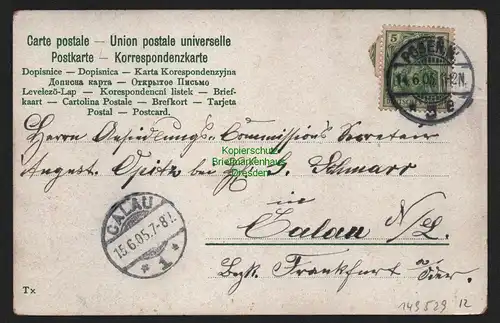 Carte postale — Union postale universelle
Postkarte — Korrespondenzkarte
Dopisnice — Dopisnica — Karta Korespondencyjna
Дописна карта — Открытое Письмо
Levelező-Lap — Korespondencni listek — Brief-
kaart — Cartolina Postale — Brefkort — Tarjeta
Postal — Postcard.
5
POSEN
14.6.05.1-2N.
* 3 e
Herrn Ansiedlungs-Commissions Secretair
August Opitz bei H. G. Schmarr
in
Calau N/L
Bzk. Frankfurt a/Oder.
Korpuscheck
Briefmarkenhaus
Dresden
CALAU
15.6.05.7-8V.
* 1 *
Tx
149529 12